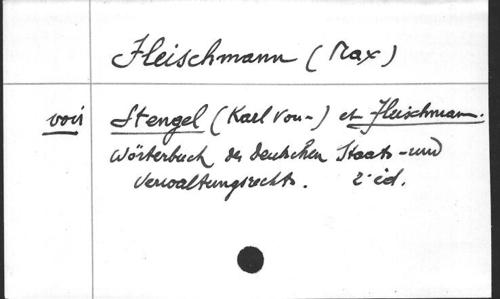 Fleischmann (Max)
voir Stengel (Karl von-) et Fleischmann.
Wörterbuch des deutschen Staats-und
Verwaltungsrechts. 2e éd.